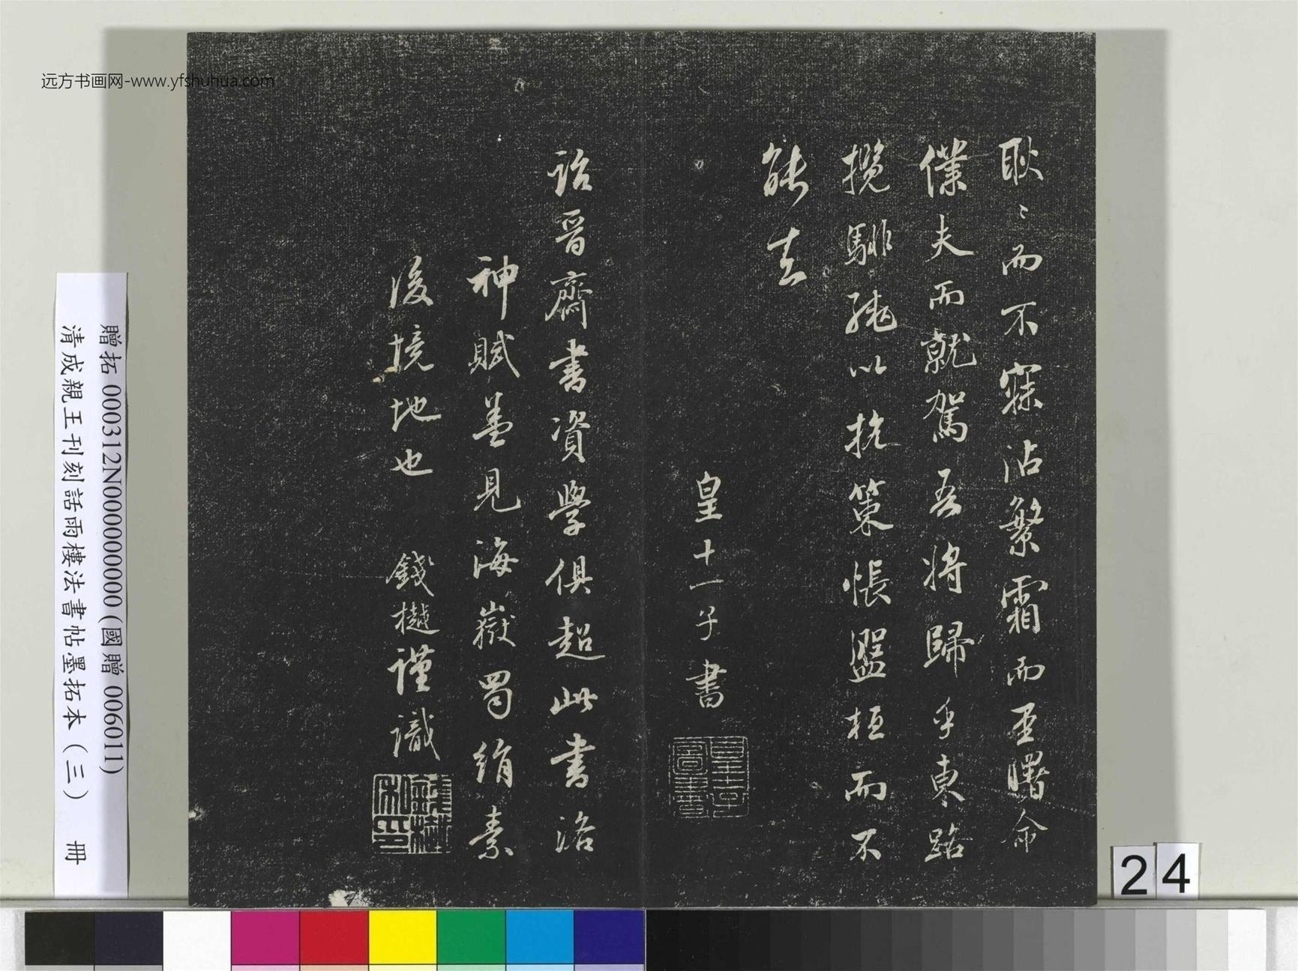 远方书画网-www.yfshuhua.com
耿〻而不寐沾繁霜而至曙命
僕夫而就駕吾將歸乎東路
攬騑轡以抗策悵盤桓而不
能去
皇十一子書
皇十一子圖書
詒晉齋書資學俱超此書洛
神賦並見海嶽蜀絹素
後境地也
錢樾謹識
錢樾私印
贈拓 000312N000000000(國贈 006011)
清成親王刊刻話雨樓法書帖墨拓本(三) 冊
24